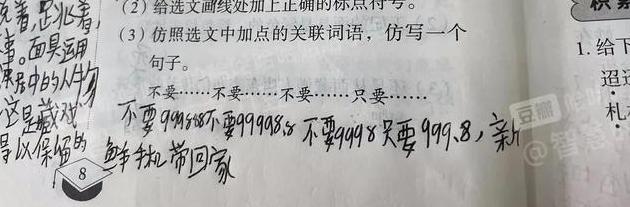 (2) 给选文画线处加上正确的标点符号。
(3) 仿照选文中加点的关联词语，仿写一个
句子。
不要……不要……不要……只要……
不要99998.8不要99998.8 不要9998只要999.8，新
鲜手机带回家
8
面具运用
中的人物
这是藏戏
得以保留的
积累
1. 给下
迢
札
豆瓣
@智慧